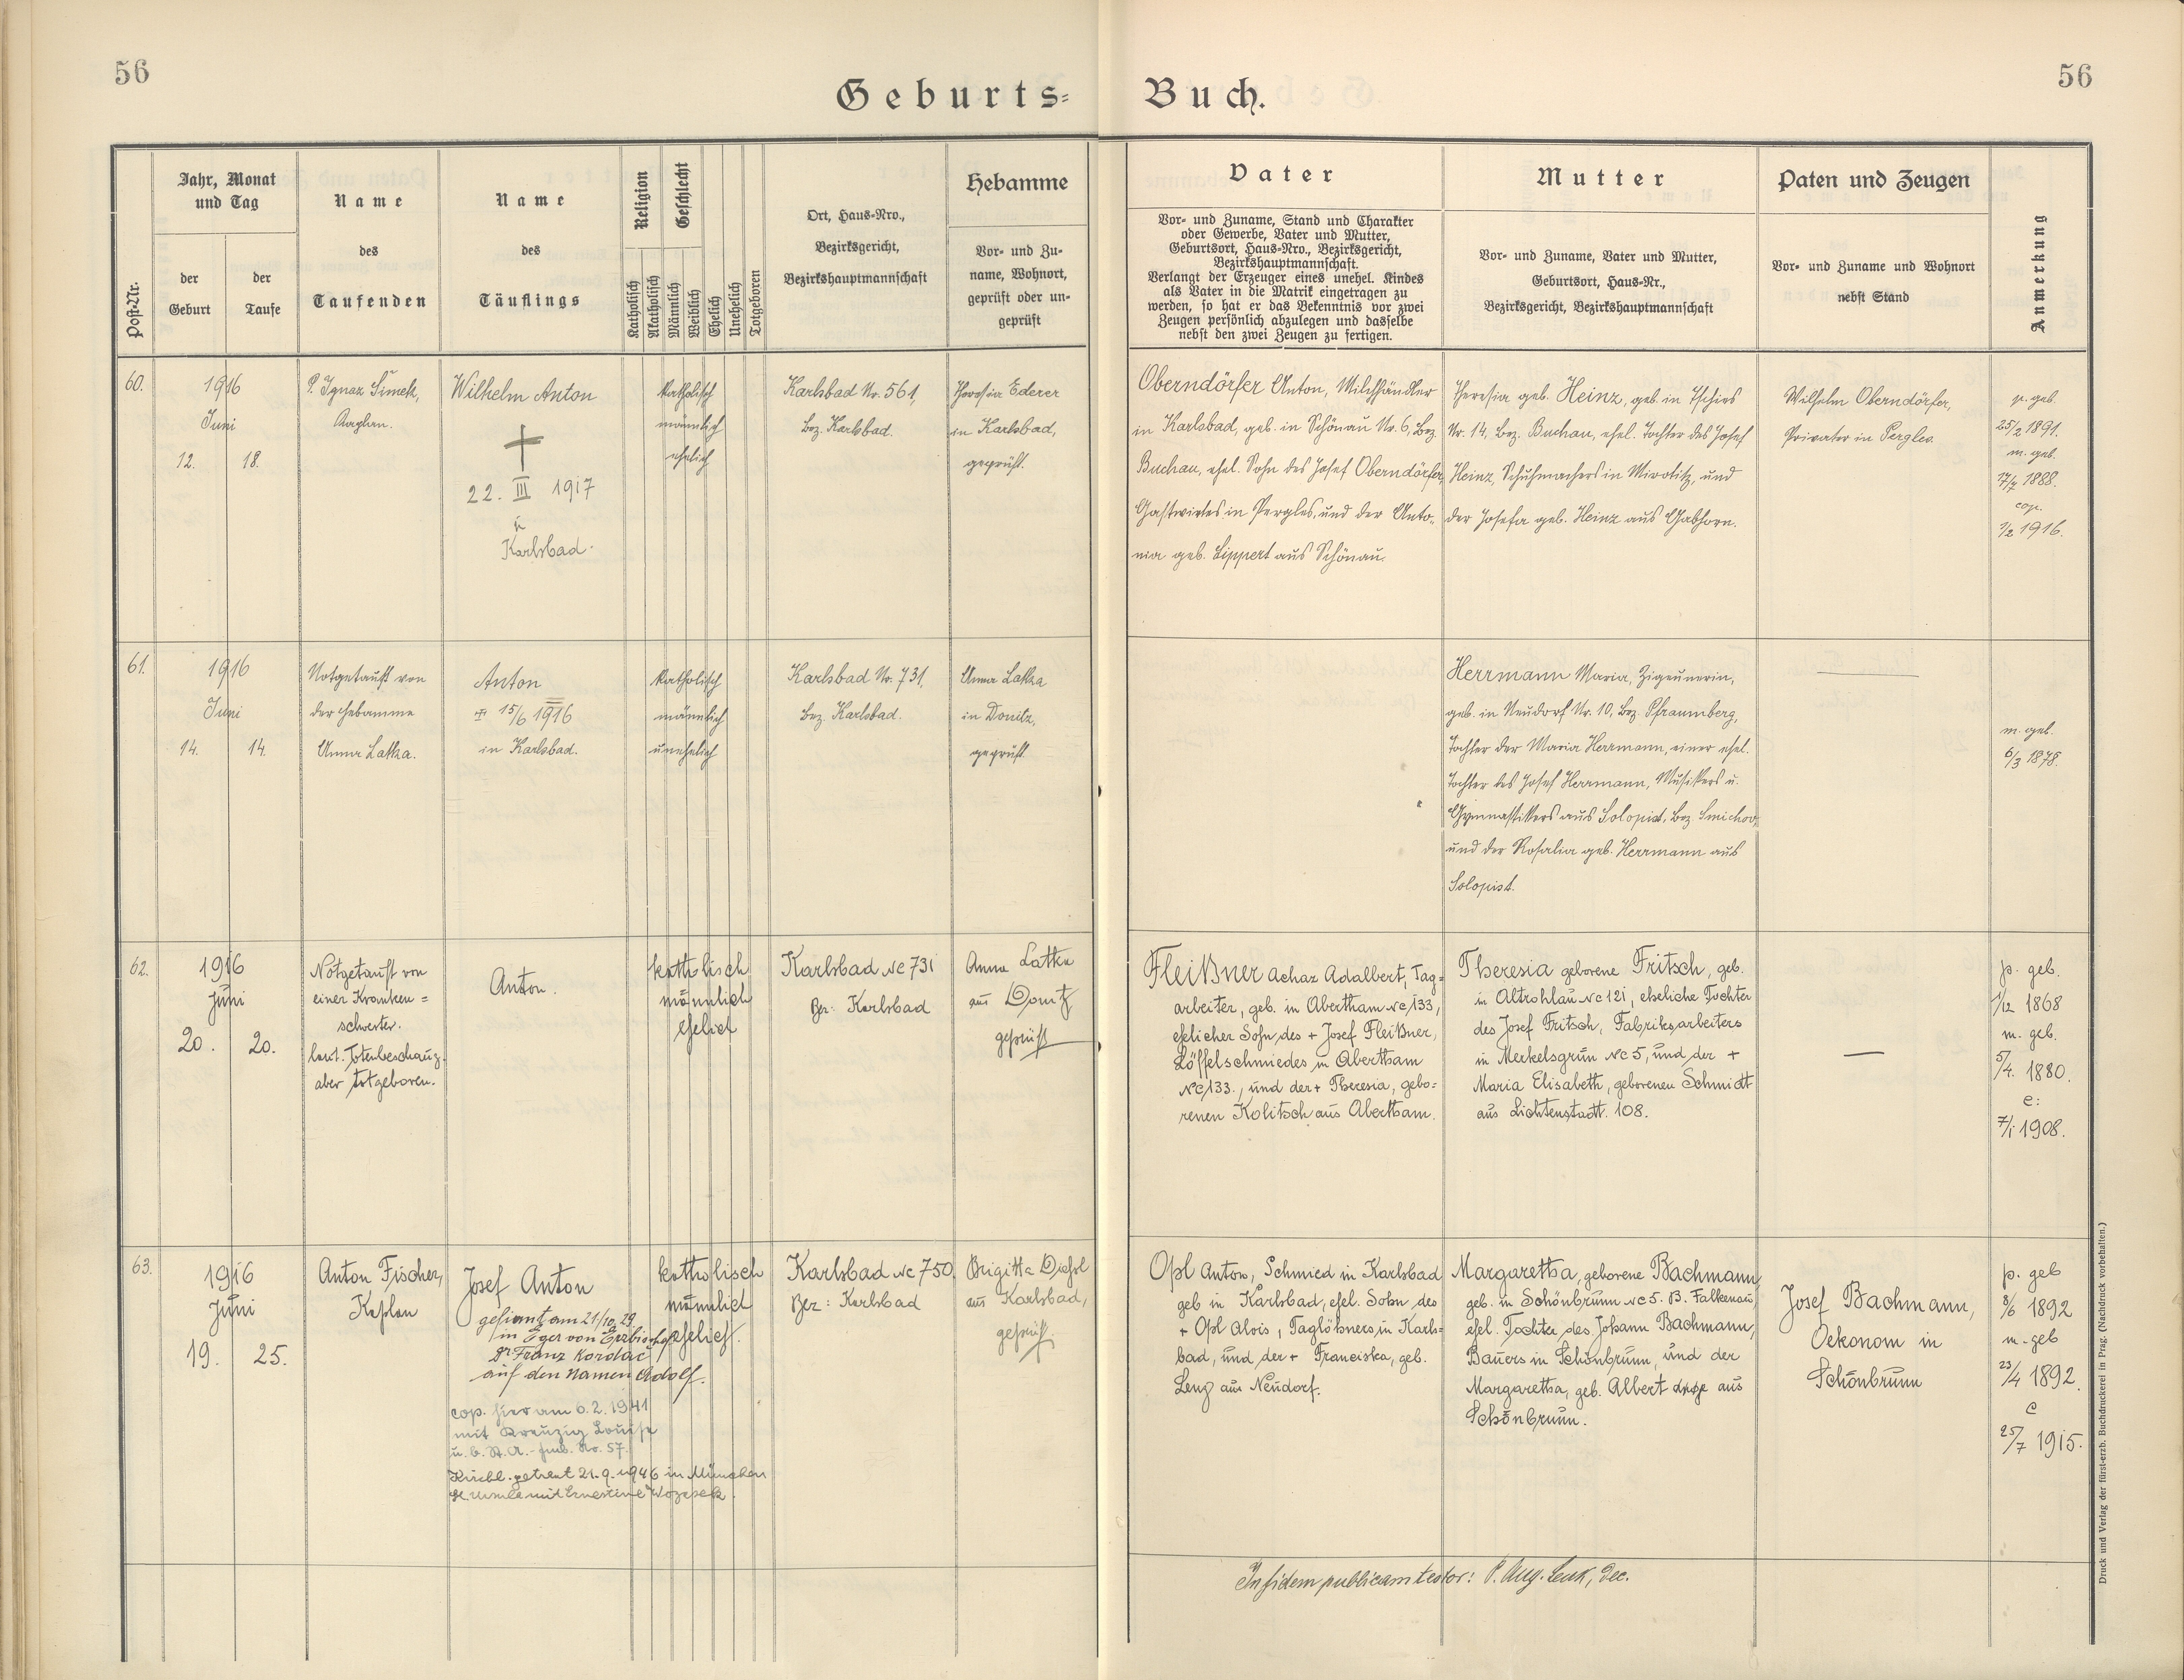 56
56
Geburts=
Buch.
Post-Nr.
Jahr, Monat
und Tag
der
Geburt
der
Taufe
Name
des
Taufenden
Name
des
Täuflings
Religion
Katholisch
Akatholisch
Geschlecht
Männlich
Weiblich
Ehelich
Unehelich
Totgeboren
Ort, Haus-Nro.,
Bezirksgericht,
Bezirkshauptmannschaft
Hebamme
Vor- und Zu-
name, Wohnort,
geprüft oder un-
geprüft
Vater
Vor- und Zuname, Stand und Charakter
oder Gewerbe, Vater und Mutter,
Geburtsort, Haus-Nro., Bezirksgericht,
Bezirkshauptmannschaft.
Verlangt der Erzeuger eines unehel. Kindes
als Vater in die Matrik eingetragen zu
werden, so hat er das Bekenntnis vor zwei
Zeugen persönlich abzulegen und dasselbe
nebst den zwei Zeugen zu fertigen.
Mutter
Vor- und Zuname, Vater und Mutter,
Geburtsort, Haus-Nr.,
Bezirksgericht, Bezirkshauptmannschaft
Paten und Zeugen
Vor- und Zuname und Wohnort
nebst Stand
Anmerkung
60.
1916
Juni
12. 18.
P. Ignaz Šimek,
Kaplan.
Wilhelm Anton
22. III 1917
in
Karlsbad.
katholisch
männlich
ehelich
Karlsbad Nr. 561,
Bez. Karlsbad.
Theresia Ederer
in Karlsbad,
geprüft.
Oberndörfer Anton, Milchhändler
in Karlsbad, geb. in Schönau Nr. 6, Bez.
Buchau, ehel. Sohn des Josef Oberndörfer,
Gastwirtes in Pergles, und der Anto-
nia geb. Lippert aus Schönau.
Theresia geb. Heinz, geb. in Tschies
Nr. 14, Bez. Buchau, ehel. Tochter des Josef
Heinz, Schuhmachers in Mirotitz, und
der Josefa geb. Heinz aus Gabhorn.
Wilhelm Oberndörfer,
Privater in Pergles.
p. geb.
25/2 1891.
m. geb.
17/7 1888.
cop.
1/2 1916.
61.
1916
Juni
14. 14.
Notgetauft von
der Hebamme
Anna Latka.
Anton
15/6 1916
in Karlsbad.
katholisch
männlich
unehelich
Karlsbad Nr. 731,
Bez. Karlsbad.
Anna Latka
in Donitz,
geprüft.
Herrmann Maria, Zigeunerin,
geb. in Neudorf Nr. 10, Bez. Pfraumberg,
Tochter der Maria Herrmann, einer ehel.
Tochter des Josef Herrmann, Musikers u.
Gymnastikers aus Solopist, Bez. Smichov,
und der Rosalia geb. Herrmann aus
Solopist.
m. geb.
6/3 1878.
62.
1916
Juni
20. 20.
Notgetauft von
einer Kranken=
schwester.
laut. Totenbeschauz.
aber totgeboren.
Anton.
katholisch
männlich
ehelich
Karlsbad Nc 731
Bez: Karlsbad
Anna Latka
aus Donitz
geprüft
Fleißner Achaz Adalbert, Tag=
arbeiter, geb. in Abertham Nc 133,
ehelicher Sohn des + Josef Fleißner,
Löffelschmiedes in Abertham
Nc 133., und der + Theresia, gebo=
renen Kolitsch aus Abertham.
Theresia geborene Fritsch, geb.
in Altrohlau Nc 121, eheliche Tochter
des Josef Fritsch, Fabriksarbeiters
in Merkelsgrün Nc 5, und der +
Maria Elisabeth, geborenen Schmidt
aus Lichtenstadt. 108.
p. geb.
1/12 1868
m. geb.
5/4. 1880.
c:
7/1 1908.
63.
1916
Juni
19. 25.
Anton Fischer,
Kaplan
Josef Anton
gefirmt am 21/10. 29.
in Eger von Erzbischof
Dr Franz Kordač
auf den Namen Adolf.
cop. hier am 6.2.1941
mit Kreuzig Louise
u. b. St. A. No. 57.
Kirchl. getraut 21.9.1946 in München
St Ursula mit Ernestine
katholisch
männlich
ehelich.
Karlsbad Nc 750
Bez: Karlsbad
Brigitta Diehl
aus Karlsbad,
geprüft.
Opl Anton, Schmied in Karlsbad
geb in Karlsbad, ehel. Sohn des
+ Opl Alois, Taglöhners in Karls=
bad, und der + Franciska, geb.
Lenz aus Neudorf.
Margaretha, geborene Bachmann,
geb. in Schönbrunn Nc 5. B. Falkenau,
ehel. Tochter des Johann Bachmann,
Bauers in Schönbrunn, und der
Margaretha, geb. Albert aus
Schönbrunn.
Josef Bachmann,
Oekonom in
Schönbrunn
p. geb
8/6 1892
m. geb
23/4 1892.
c
25/7 1915.
In fidem publicam testor: P. Aug. Lenk, Dec.
Druck und Verlag der fürst-erzb. Buchdruckerei in Prag. (Nachdruck vorbehalten.)